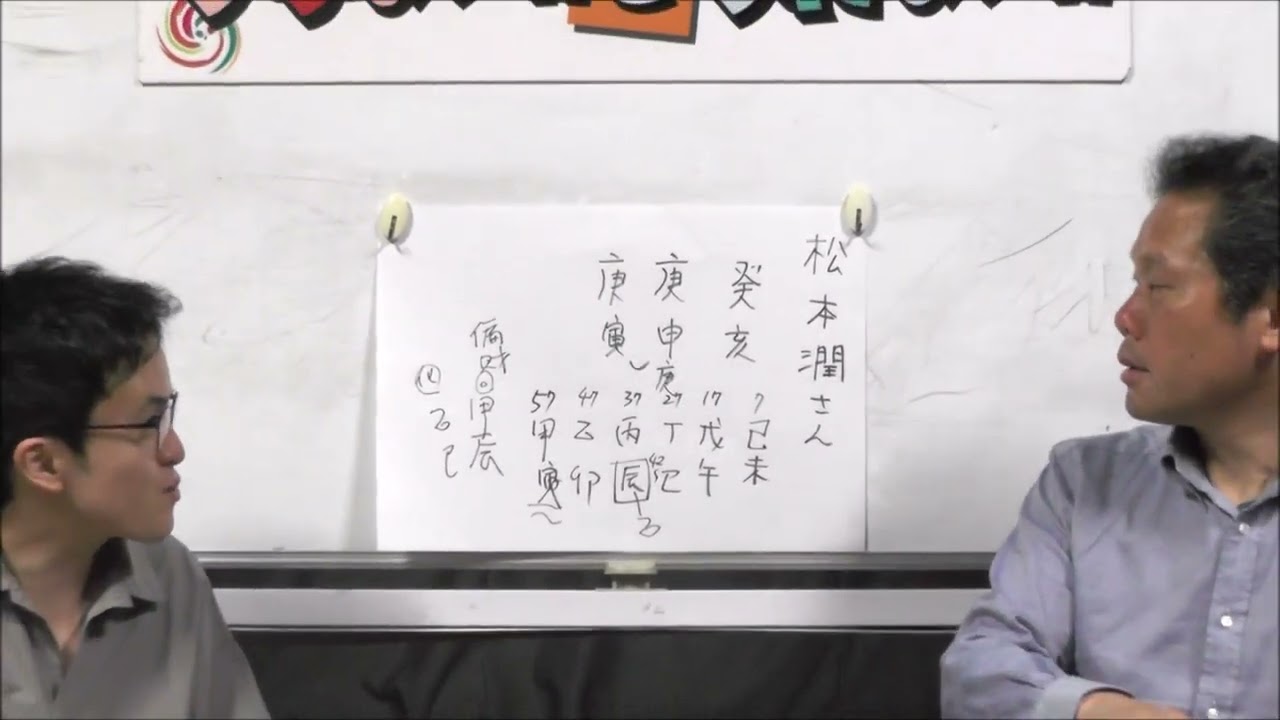 松本潤さん
癸亥
庚申
庚寅
庚
7 己未
17 戊午
27 丁巳
37 丙辰
47 乙卯
57 甲寅
偏財
甲辰
乙巳